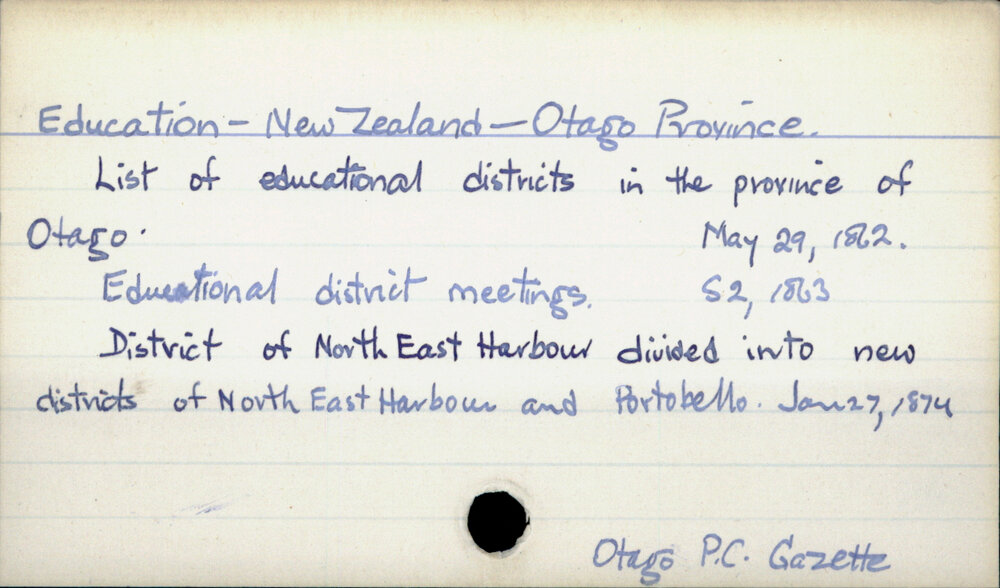 Education - New Zealand - Otago Province.
List of educational districts in the province of
Otago. May 29, 1862.
Educational district meetings. S2, 1863
District of North East Harbour divided into new
districts of North East Harbour and Portobello. Jan 27, 1874
Otago P.C. Gazette